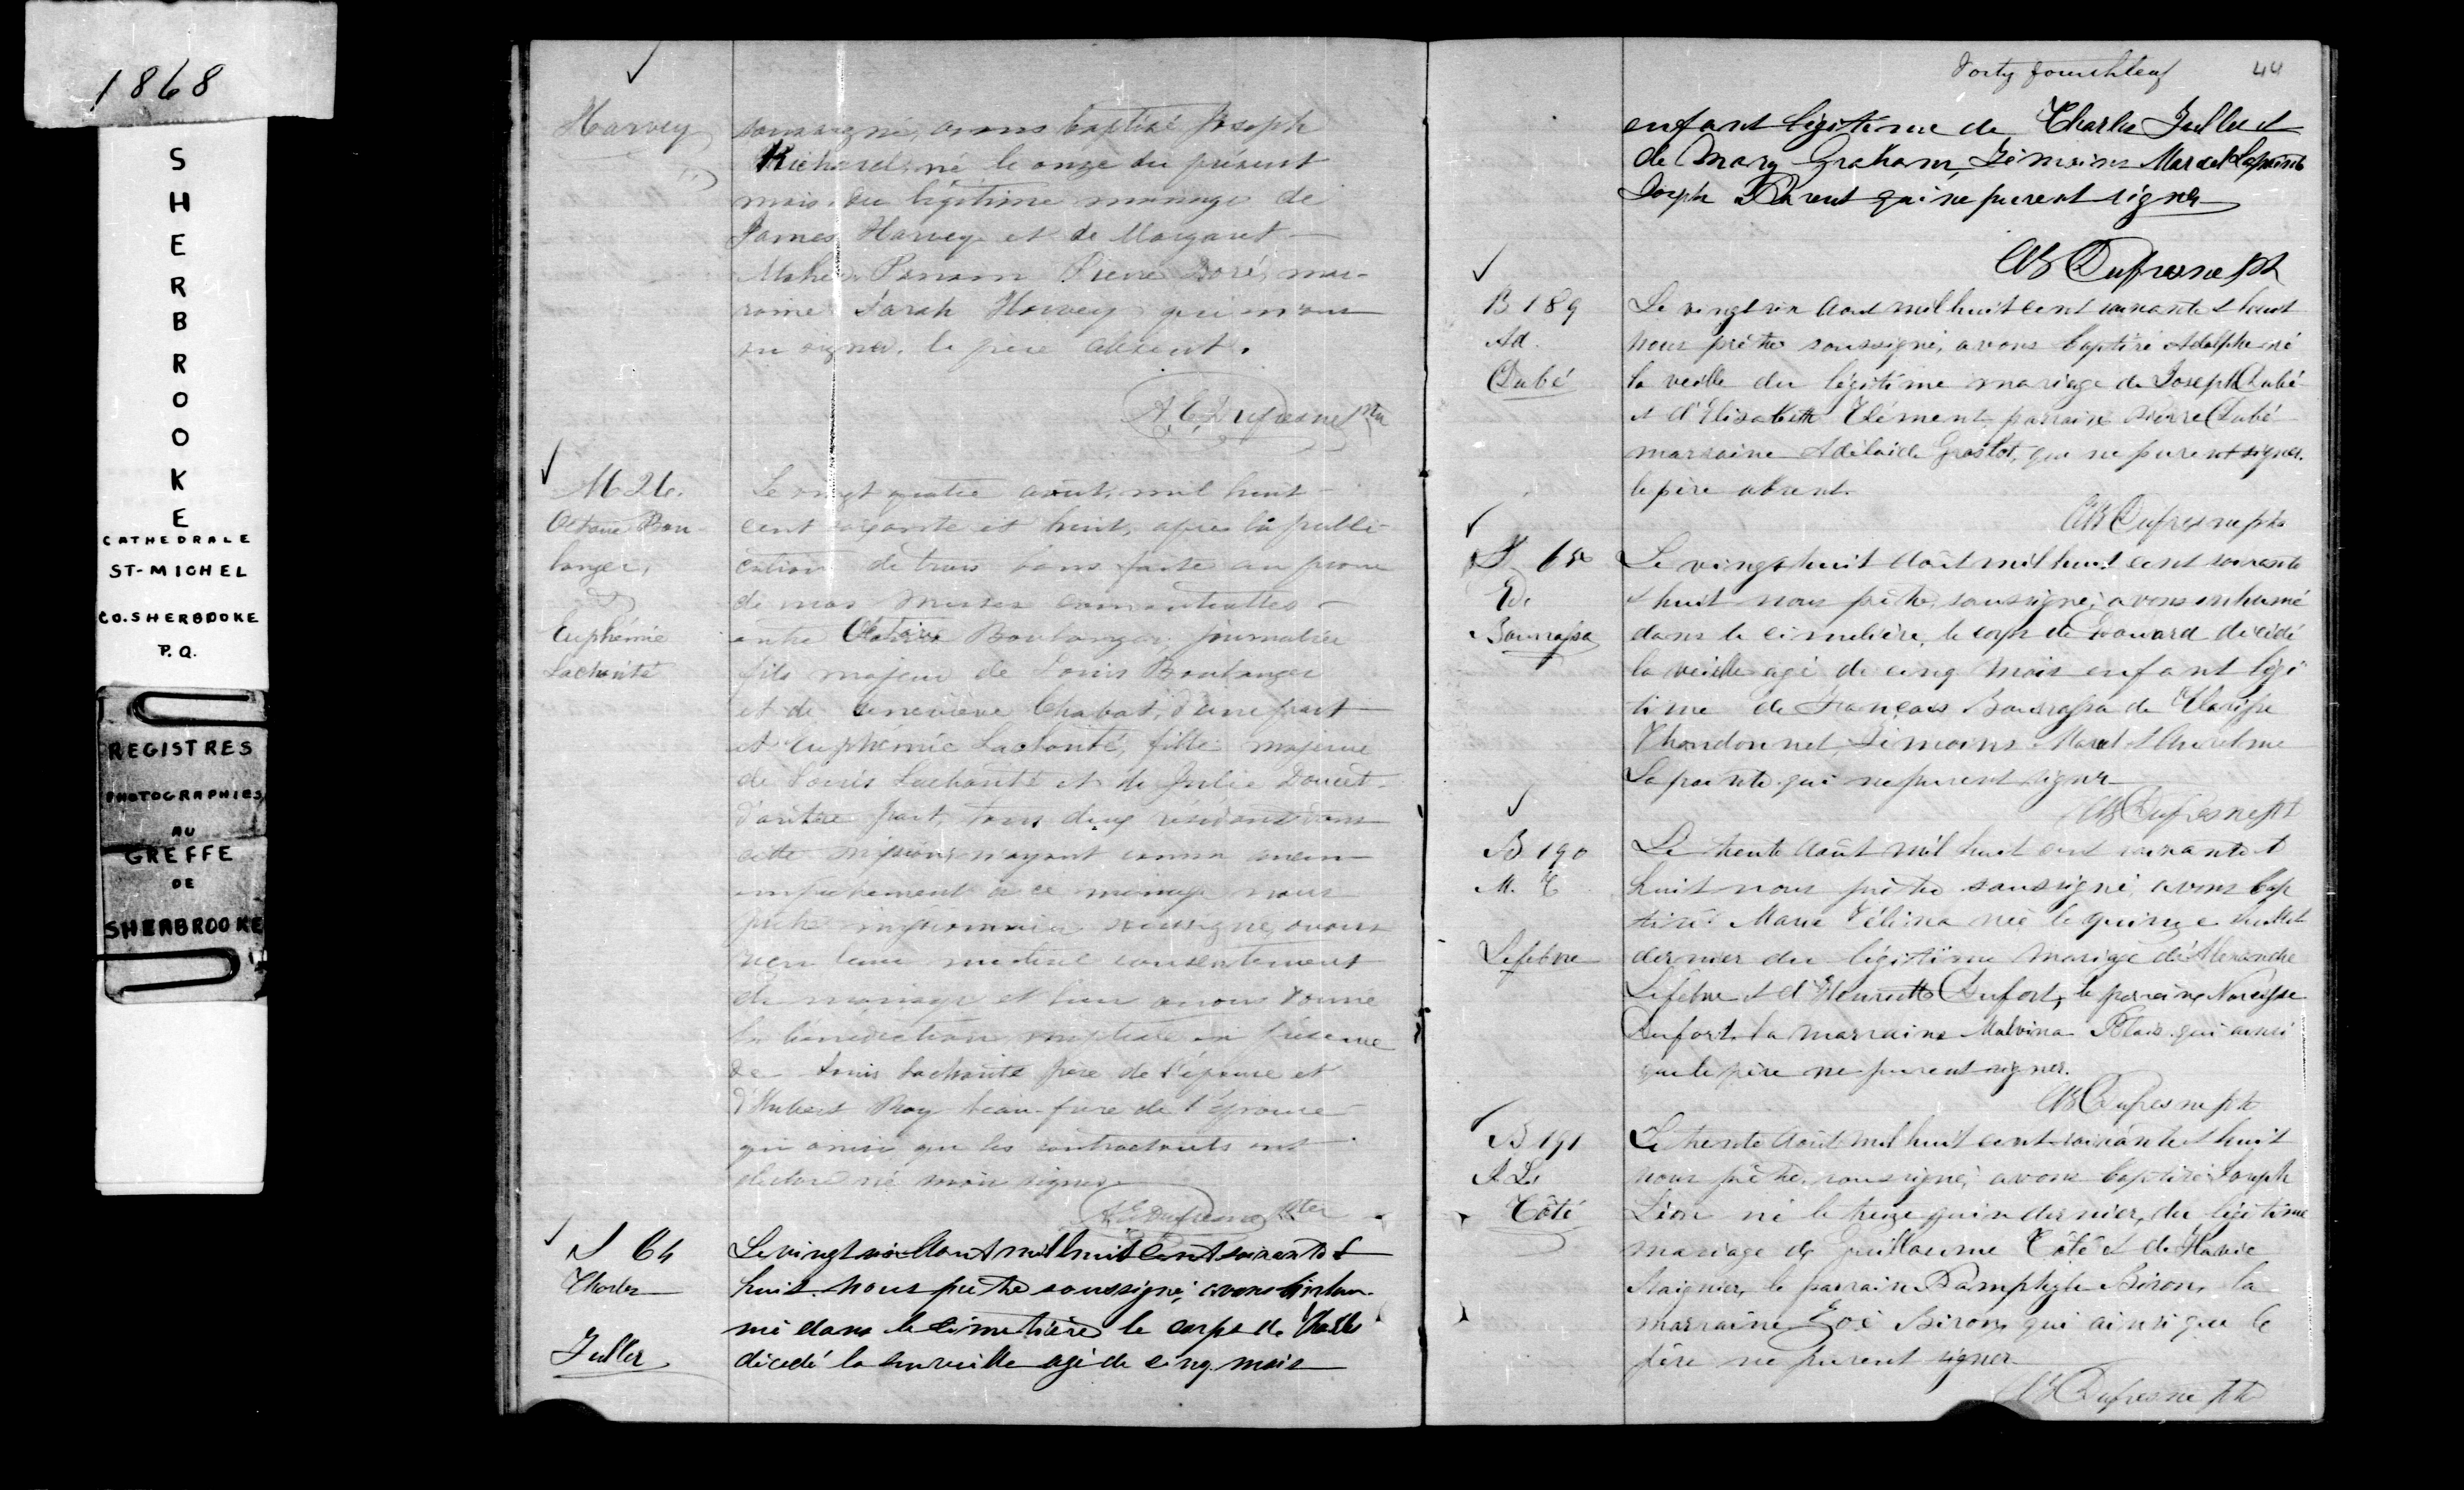 1868
SHERBROOKE
CATHEDRALE
ST-MICHEL
CO. SHERBROOKE
P.Q.
REGISTRES
PHOTOGRAPHIES
AU
GREFFE
DE
SHERBROOKE
Harvey
soussigné, avons baptisé Joseph
Richard, né le onze du présent
mois, du légitime mariage de
James Harvey et de Margaret
Parrain Pierre Doré, mar-
raine Sarah Harvey qui n'ont
su signer. le père absent.
A. E. Dufresne Ptre
M 26.
Octave Bou-
langer,
&
Euphémie
Lachanté
Le vingt quatre août, mil huit
cent soixante et huit, après la publi-
cation de trois bans faite au prone
de nos messes
entre Octave Boulanger, journalier
fils majeur de Louis Boulanger
et de Geneviève Chabot, d'une part
et Euphémie Lachanté, fille majeure
de Louis Lachanté et de Julie Doucet
d'autre part, tous deux résidants dans
cette mission, n'ayant connu aucun
empêchement à ce mariage nous
prêtre missionnaire soussigné, avons
reçu leur mutuel consentement
de mariage et leur avons donné
la bénédiction nuptiale en présence
de Louis Lachanté père de l'épouse et
d'Hubert Roy beau-frère de l'épouse
qui ainsi que les contractants ont
déclaré ne savoir signer.
A. E. Dufresne Ptre
S 64
Charles
Fuller
Le vingt six Aout mil huit cent soixante et
huit nous prêtre soussigné, avons inhu-
mé dans le cimetière le corps de Charles
décédé la surveille agé de cinq mois
Forty fourth leaf 44
enfant légitime de Charles Fuller et
de Mary Graham, Témoins Marcel Lapointe
Joseph Parent qui ne purent signer
AE Dufresne Pt
B 189
Ad.
Dubé
Le vingt six Aout mil huit cent soixante et huit
nous prêtre soussigné, avons baptisé Adolphe né
la veille du légitime mariage de Joseph Dubé
et d'Elisabeth Clément, parrain Pierre Dubé
marraine Adélaide qui ne purent signer.
le père absent.
AE Dufresne ptr
S 65
Ed.
Bourassa
Le vingt huit Août mil huit cent soixante
et huit nous prêtre, soussigné, avons inhumé
dans le cimetière, le corps de Edouard décédé
la veille agé de cinq mois enfant légi
time de François Bourassa de Clarisse
Chandonnet, Témoins Marcel et Anselme
Lapointe qui ne purent signer
AE Dufresne Pt
B 190
M. C
Lefebvre
Le trente Août mil huit cent soixante et
huit nous prêtre soussigné, avons bap
tisé Marie Célina née le quinze Juillet
dernier du légitime mariage d'Alexandre
Lefebvre et d'Henriette Dufort, le parrain Narcisse
Dufort la marraine Malvina Blais qui ainsi
que le père ne purent signer.
AE Dufresne pt
B 191
J. L.
Côté
Le trente Août mil huit cent soixante et huit
nous prêtre soussigné, avons baptisé Joseph
Léon né le treize juin dernier, du légitime
mariage de Guillaume Côté et de Flavie
le parrain Pamphyle Biron, la
marraine Zoé Biron qui ainsi que le
père ne purent signer
AE Dufresne Pt